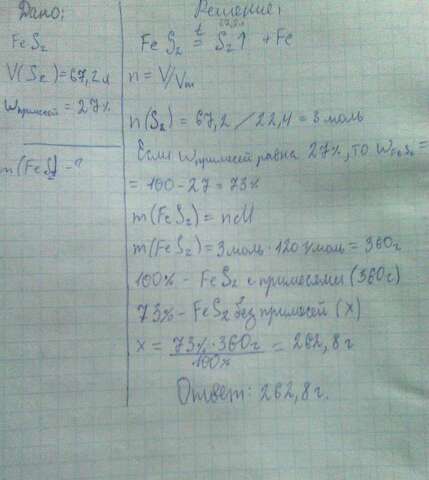 Дано:
FeS₂
V(S₂)=67,2л
wпримесей = 27%
m(FeS₂) - ?
Решение:
67,2л
FeS₂ =t S₂↑ + Fe
n = V/Vm
n(S₂) = 67,2 / 22,4 = 3 моль
Если wпримесей равна 27%, то wFeS₂ =
= 100 - 27 = 73%
m(FeS₂) = n·M
m(FeS₂) = 3 моль · 120 г/моль = 360г
100% - FeS₂ с примесями (360г)
73% - FeS₂ без примесей (x)
x = 73% · 360г / 100% = 262,8 г
Ответ: 262,8 г.